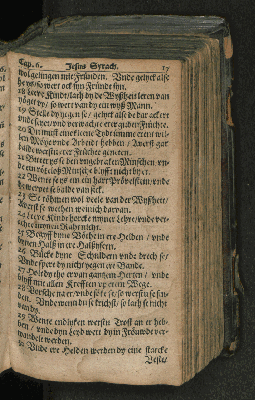 Cap. 6. Jesus Syrach. 17
wolgelingen mit Fründen. Unde gelyck alse
he ys / so wert ock syn Fründ syn.
18 Leve Kindt / lath dy de Wyßheit leren van
yöget up / so wert van dy ein wyß Mann.
19 Stelle dy yegen se / gelyck alse de dar ackert
unde seyet / und verwachte erer guden Früchte.
20 Du must eine kleine Tydt umme erent wil-
len Möye unde Arbeidt hebben / Averst gar
baldt werstu erer Früchte geneten.
21 Bitter ys se den Minschen / un-
de ein rokeloß Minsche blifft nicht by er.
22 Wente se ys em ein hart Pröveſtein / unde
he werpet se balde van sick.
23 Se röhmen wol veele van der Wyßheit /
Averst se wethen weinich darvan.
24 Leve Kindt horcke myner Lehre / unde ver-
achte mynen Radt nicht.
25 Beghyff dyne Vöthe in ere Helden / unde
dynen Halß in ere Halßysern.
26 Bücke dyne Schuldern unde drech se /
Unde sperr dy nicht yegen ere Bande.
27 Holdt dy tho er van gantzem Herten / unde
blyff mit allen Krefften up erem Wege.
28 Vorsche na er / unde söke se / so werstu se fin-
den. Unde wenn du se krichst / so lath se nicht
van dy.
29 Wente endtliken werstu Trost an er heb-
ben / unde dyn Leyd wert dy in Fröuwde ver-
wandelt werden.
30 Unde ere Helden werden dy eine starcke
Veste /